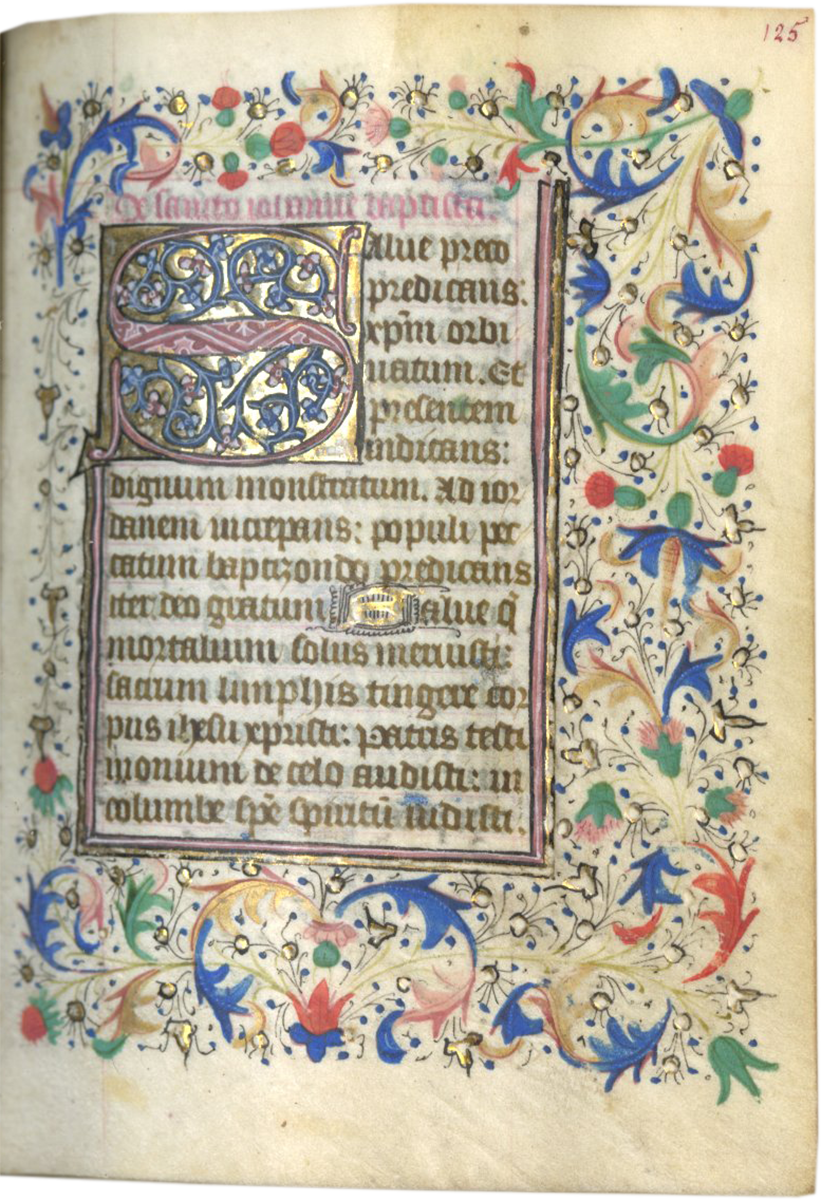 125
De sancto iohanne baptista.
Salue preco
predicans:
xp̄m orbi
natum. Et
presentem
indicans:
dignum monstratum. Ad ior
danem increpans: populi pec
catum baptizondo predicans
iter deo gratum Salue q̄
mortalium solus meruisti:
sacrum limphis tingere cor
pus ihesu xpristi: patris testi
monium de celo audisti: in
columbe sp̄e spiritū uidisti.